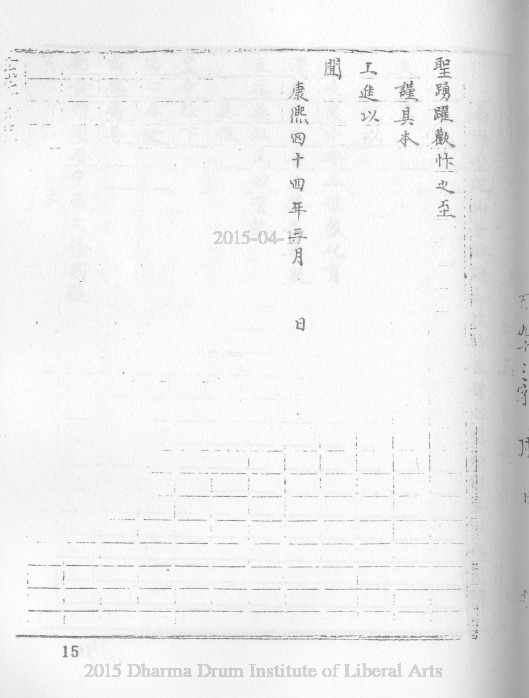 聖踴躍歡忭之至
謹具本
工進以
聞
康熙四十四年三月　日
2015-04-1
15
2015 Dharma Drum Institute of Liberal Arts